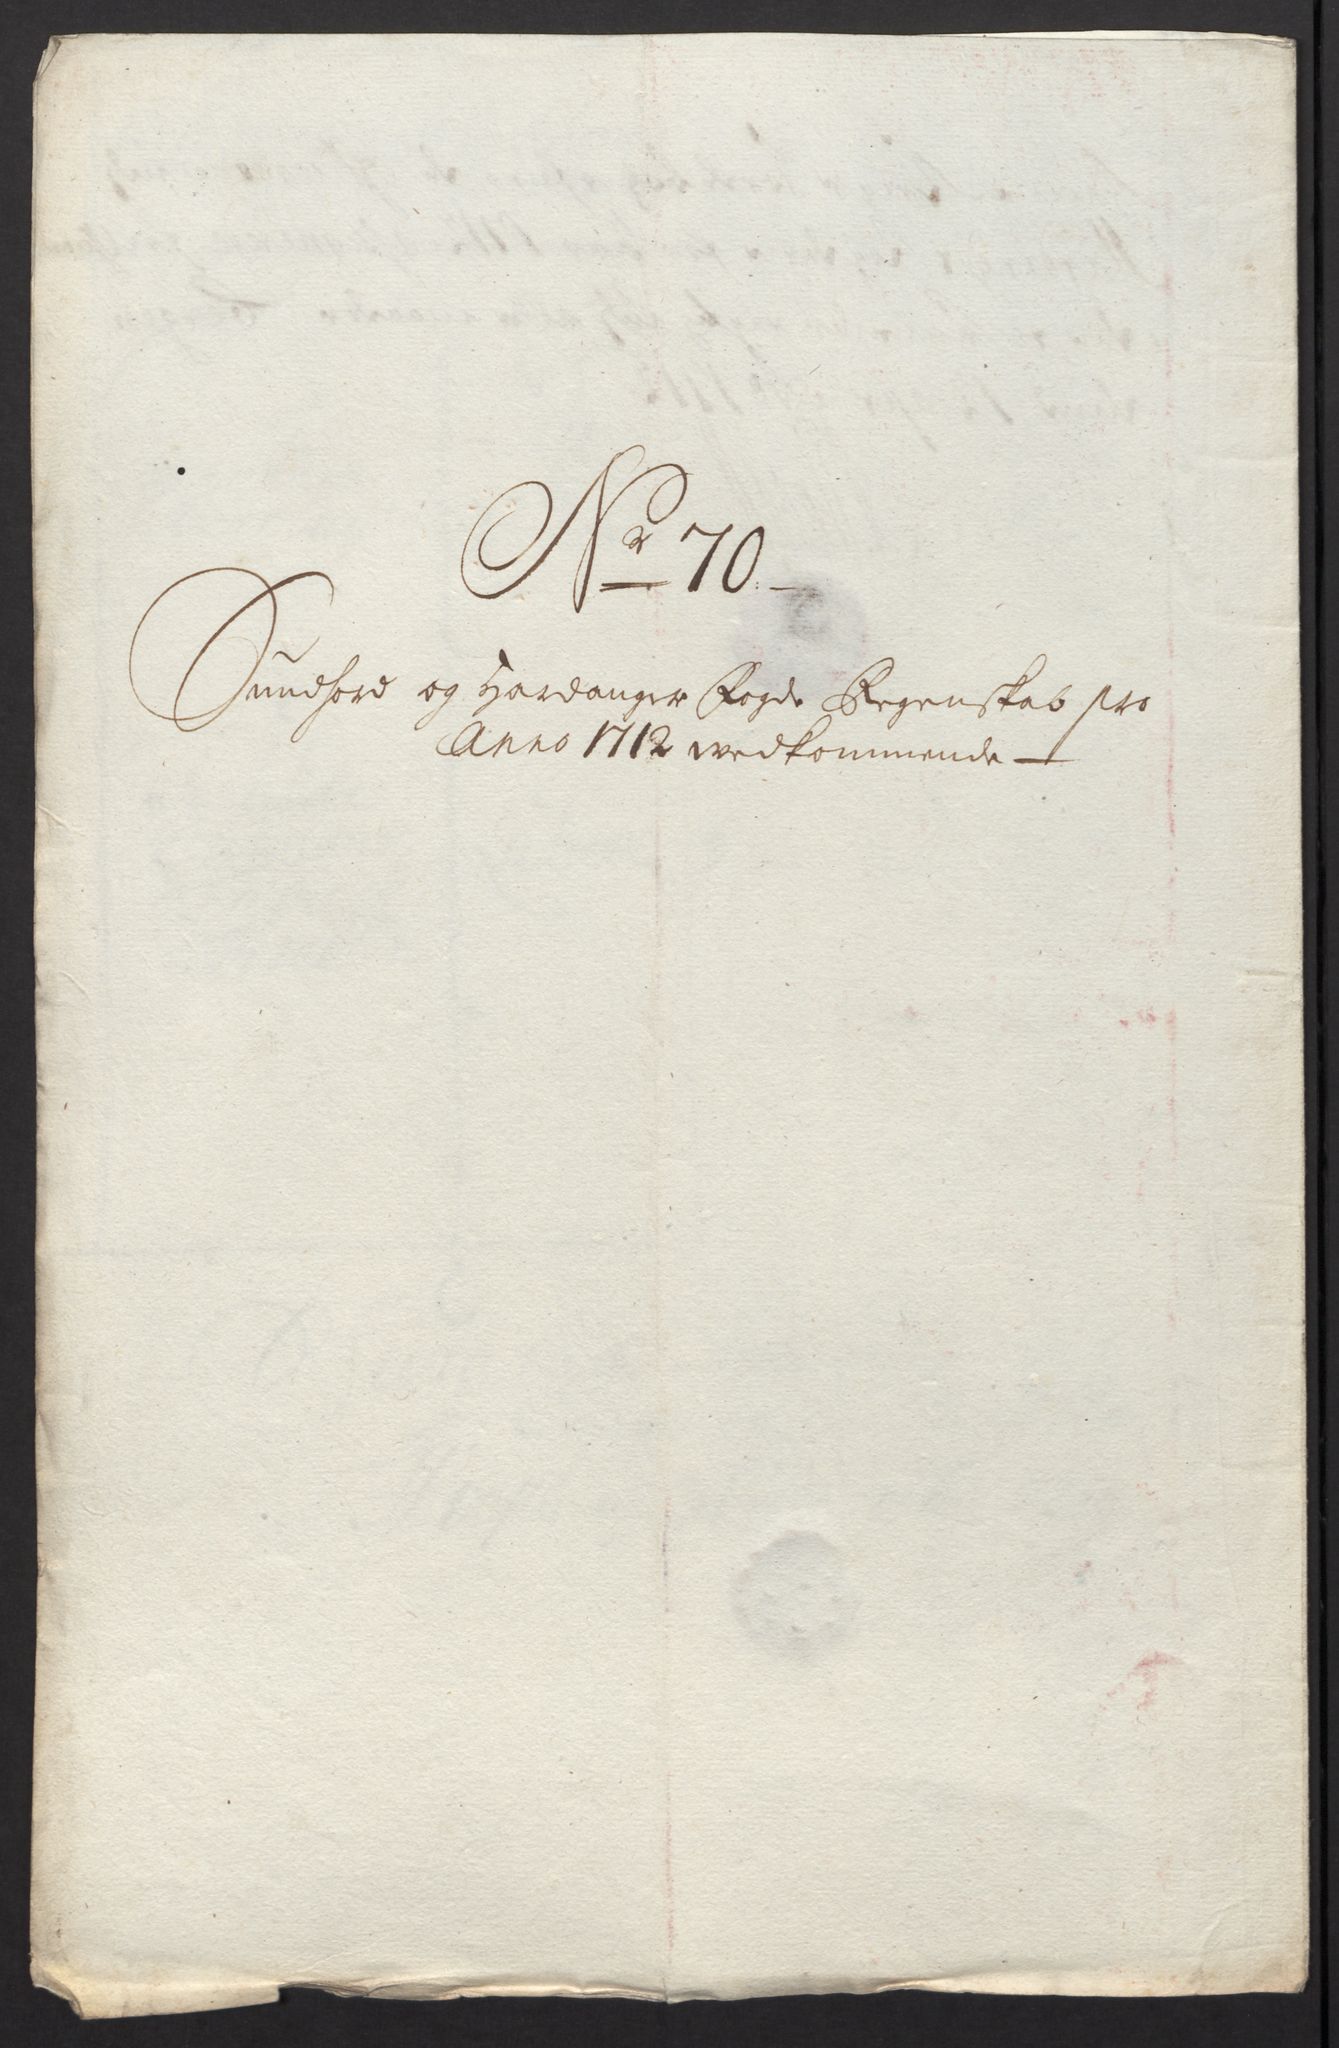 Nr 70.
Sundhord og Hardanger Fogde Regenskab pro
Anno 1712 wedkommende